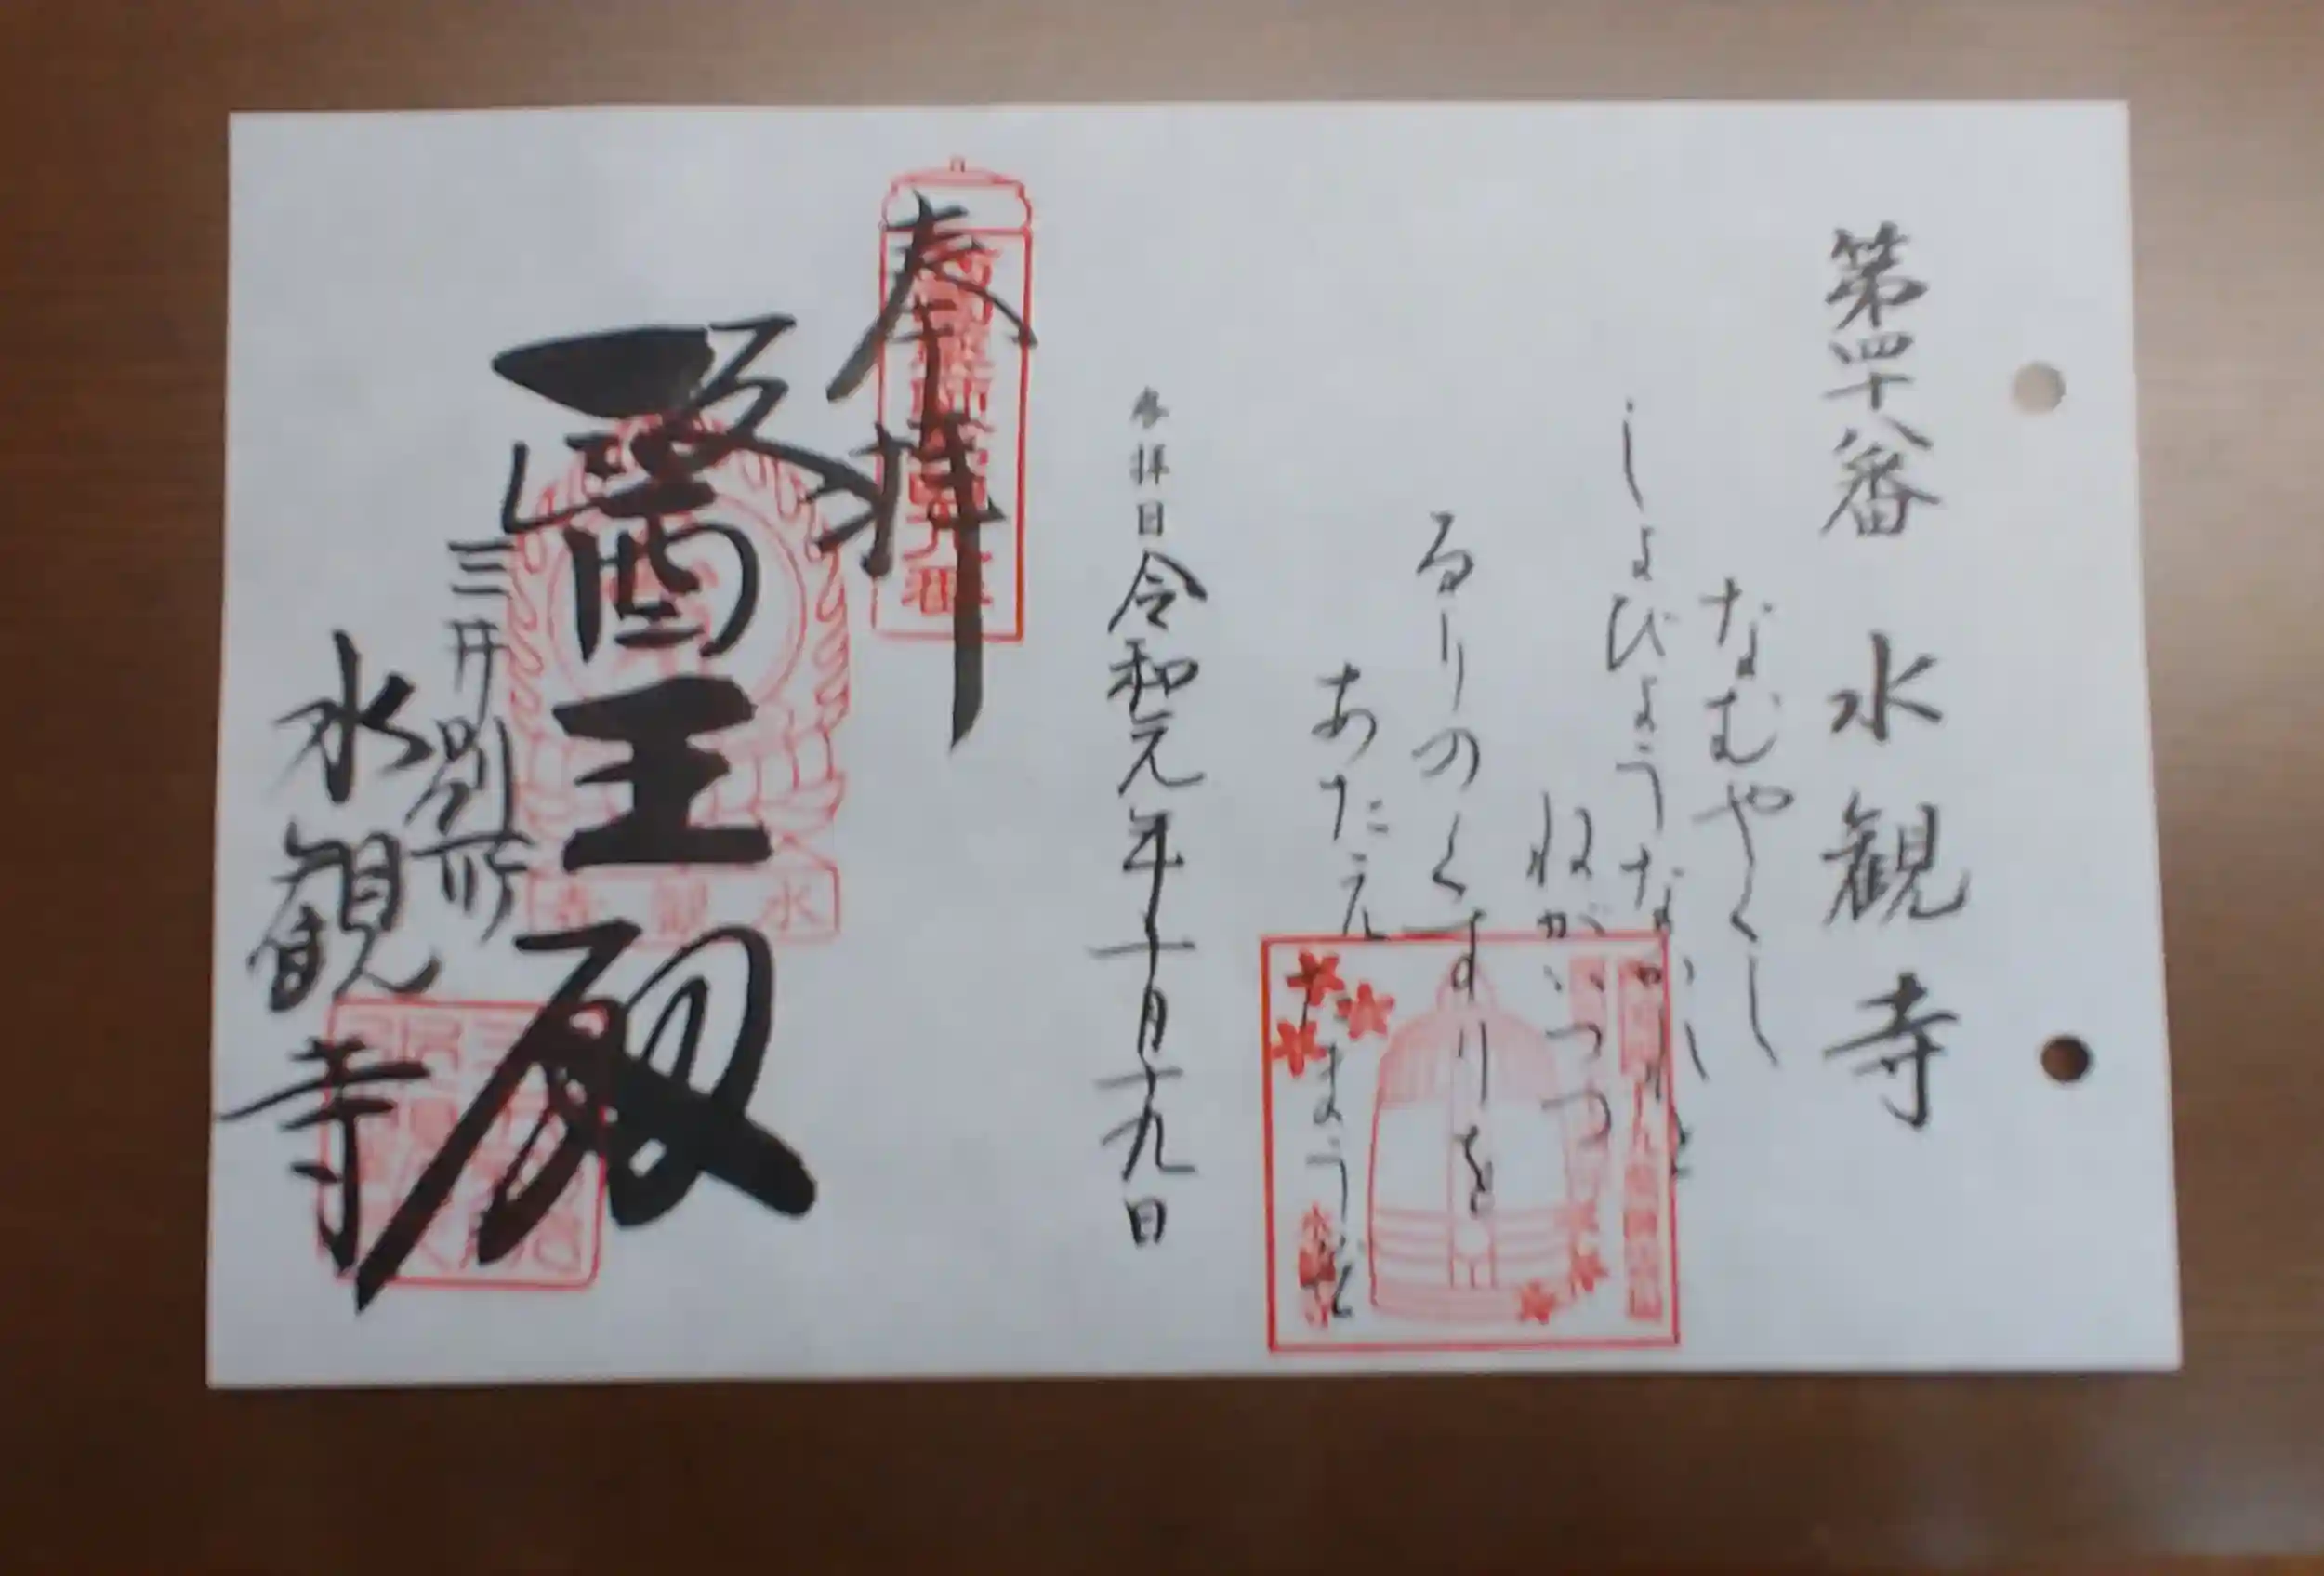 第四十八番 水観寺
なむやくし
しょびょうなかれと
ねがいつつ
るりのくすりを
あたえたまうぞ
参拝日 令和元年十一月十九日
奉拝
医王殿
三井別所
水観寺
水観寺